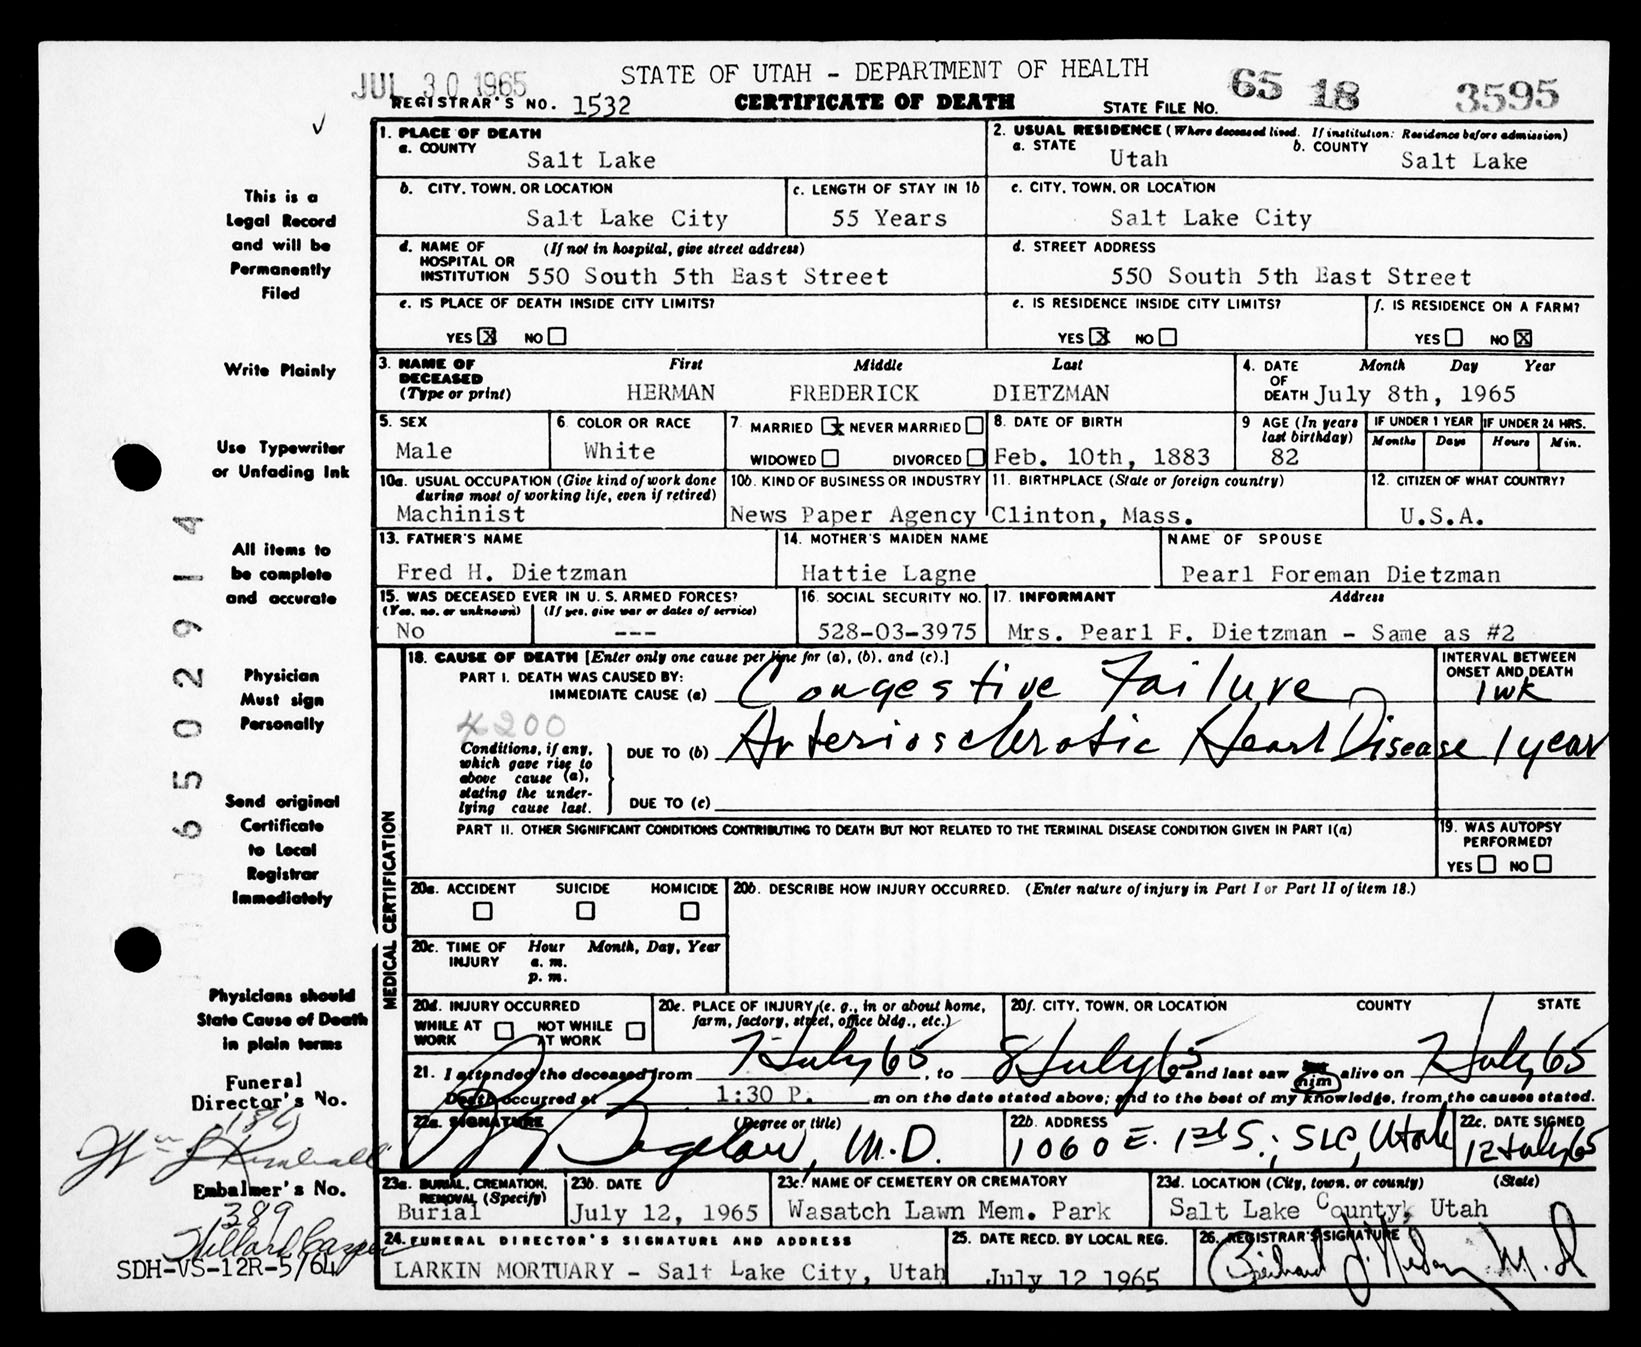 JUL 30 1965
STATE OF UTAH - DEPARTMENT OF HEALTH
65 18 3595
REGISTRAR'S NO. 1532
CERTIFICATE OF DEATH
STATE FILE NO.
1. PLACE OF DEATH
a. COUNTY
Salt Lake
2. USUAL RESIDENCE (Where deceased lived. If institution: Residence before admission)
a. STATE
Utah
b. COUNTY
Salt Lake
b. CITY, TOWN, OR LOCATION
Salt Lake City
c. LENGTH OF STAY IN 1b
55 Years
c. CITY, TOWN, OR LOCATION
Salt Lake City
d. NAME OF HOSPITAL OR INSTITUTION
(If not in hospital, give street address)
550 South 5th East Street
d. STREET ADDRESS
550 South 5th East Street
e. IS PLACE OF DEATH INSIDE CITY LIMITS?
YES X NO
e. IS RESIDENCE INSIDE CITY LIMITS?
YES X NO
f. IS RESIDENCE ON A FARM?
YES NO X
3. NAME OF DECEASED (Type or print)
First Middle Last
HERMAN FREDERICK DIETZMAN
4. DATE OF DEATH
Month Day Year
July 8th, 1965
5. SEX
Male
6. COLOR OR RACE
White
7. MARRIED X NEVER MARRIED
WIDOWED DIVORCED
8. DATE OF BIRTH
Feb. 10th, 1883
9 AGE (In years last birthday)
82
IF UNDER 1 YEAR
Months Days
IF UNDER 24 HRS.
Hours Min.
10a. USUAL OCCUPATION (Give kind of work done during most of working life, even if retired)
Machinist
10b. KIND OF BUSINESS OR INDUSTRY
News Paper Agency
11. BIRTHPLACE (State or foreign country)
Clinton, Mass.
12. CITIZEN OF WHAT COUNTRY?
U.S.A.
13. FATHER'S NAME
Fred H. Dietzman
14. MOTHER'S MAIDEN NAME
Hattie Lagne
NAME OF SPOUSE
Pearl Foreman Dietzman
15. WAS DECEASED EVER IN U. S. ARMED FORCES?
(Yes, no, or unknown) (If yes, give war or dates of service)
No ---
16. SOCIAL SECURITY NO.
528-03-3975
17. INFORMANT Address
Mrs. Pearl F. Dietzman - Same as #2
MEDICAL CERTIFICATION
18. CAUSE OF DEATH [Enter only one cause per line for (a), (b), and (c).]
INTERVAL BETWEEN ONSET AND DEATH
PART I. DEATH WAS CAUSED BY:
IMMEDIATE CAUSE (a) Congestive Failure 1 wk
4200
Conditions, if any, which gave rise to above cause (a), stating the underlying cause last.
DUE TO (b) Arteriosclerotic Heart Disease 1 year
DUE TO (c)
PART II. OTHER SIGNIFICANT CONDITIONS CONTRIBUTING TO DEATH BUT NOT RELATED TO THE TERMINAL DISEASE CONDITION GIVEN IN PART I(a)
19. WAS AUTOPSY PERFORMED?
YES NO
20a. ACCIDENT SUICIDE HOMICIDE
20b. DESCRIBE HOW INJURY OCCURRED. (Enter nature of injury in Part I or Part II of item 18.)
20c. TIME OF INJURY
Hour Month, Day, Year
a. m.
p. m.
20d. INJURY OCCURRED
WHILE AT WORK NOT WHILE AT WORK
20e. PLACE OF INJURY (e. g., in or about home, farm, factory, street, office bldg., etc.)
20f. CITY, TOWN, OR LOCATION COUNTY STATE
21. I attended the deceased from 7 July 65, to 8 July 65 and last saw him alive on 7 July 65
Death occurred at 1:30 P. m on the date stated above; and to the best of my knowledge, from the causes stated.
22a. SIGNATURE (Degree or title)
Bigelow, M.D.
22b. ADDRESS
1060 E. 1st S.; SLC, Utah
22c. DATE SIGNED
12 July 65
23a. BURIAL, CREMATION, REMOVAL (Specify)
Burial
23b. DATE
July 12, 1965
23c. NAME OF CEMETERY OR CREMATORY
Wasatch Lawn Mem. Park
23d. LOCATION (City, town, or county) (State)
Salt Lake County, Utah
24. FUNERAL DIRECTOR'S SIGNATURE AND ADDRESS
LARKIN MORTUARY - Salt Lake City, Utah
25. DATE RECD. BY LOCAL REG.
July 12 1965
26. REGISTRAR'S SIGNATURE
M.D
This is a
Legal Record
and will be
Permanently
Filed
Write Plainly
Use Typewriter
or Unfading Ink
All items to
be complete
and accurate
Physician
Must sign
Personally
Send original
Certificate
to Local
Registrar
Immediately
Physicians should
State Cause of Death
in plain terms
Funeral
Director's No.
Wm Kimball
Embalmer's No.
389
Willard
SDH-VS-12R-5/64
6502914